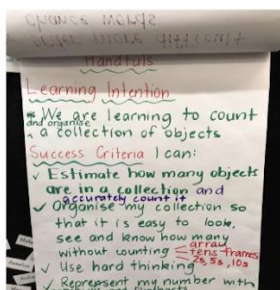 chance words
Handfuls
Learning Intention
* We are learning to count
and organise
a collection of objects
Success Criteria I can:
✓ Estimate how many objects
are in a collection and
accurately count it
✓ Organise my collection so
that it is easy to look,
see and know how many
without counting array
tens-frames
2s, 5s, 10s
✓ Use hard thinking
✓ Represent my number with